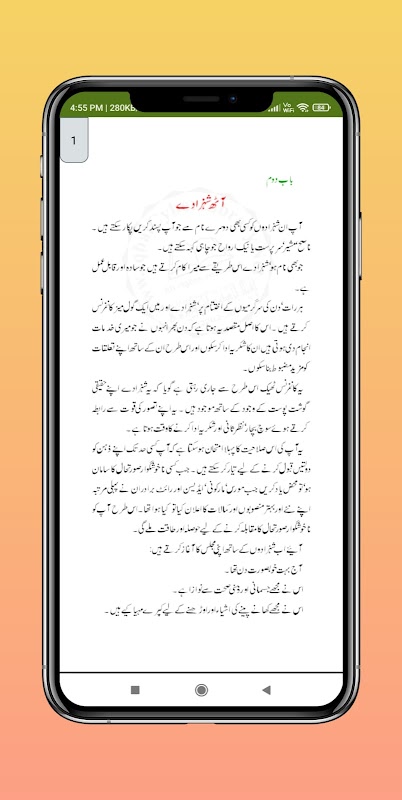 4:55 PM | 280KB/
Vo WiFi
64
1
باب دوم
آٹھ شہزادے
آپ ان شہزادوں کو کسی بھی دوسرے نام سے جو آپ پسند کریں پکار سکتے ہیں۔
ناصح، مشیر، سرپرست یا نیک ارواح جو چاہی کہہ سکتے ہیں۔
جو بھی نام ہو شہزادے اس طریقے سے میرا کام کرتے ہیں جو سادہ اور قابل عمل
ہے۔
ہر رات دن کی سرگرمیوں کے اختتام پر شہزادے اور میں ایک گول میز کانفرنس
کرتے ہیں۔ اس کا اصل مقصد یہ ہوتا ہے کہ دن بھر انہوں نے جو میری خدمات
انجام دی ہوتی ہیں ان کا شکریہ ادا کر سکوں اور اس طرح ان کے ساتھ اپنے تعلقات
کو مزید مضبوط بنا سکوں۔
یہ کانفرنس ٹھیک اس طرح سے جاری رہتی ہے گویا کہ یہ شہزادے اپنے حقیقی
گوشت پوست کے وجود کے ساتھ موجود ہیں۔ یہ اپنے تصور کی قوت سے رابطہ
کرتے ہوئے سوچ بچار، نظرثانی اور شکریہ ادا کرنے کا وقت ہوتا ہے۔
یہ آپ کی اس صلاحیت کا پہلا امتحان ہو سکتا ہے کہ آپ کسی حد تک اپنے ذہن کو
دولتیں قبول کرنے کے لیے تیار کر سکتے ہیں۔ جب کسی ناخوشگوار صورتحال کا سامان
ہو تو محض یاد کریں جب مورس، مارکونی، ایڈیسن اور رائٹ برادران نے پہلی مرتبہ
اپنے نئے اور بہتر منصوبوں اور کمالات کا اعلان کیا تو کیا ہوا تھا۔ اس طرح آپ کو
ناخوشگوار صورتحال کا مقابلہ کرنے کے لیے حوصلہ اور طاقت ملے گی۔
آیئے اب شہزادوں کے ساتھ اپنی مجلس کا آغاز کرتے ہیں:
آج بہت خوبصورت دن تھا۔
اس نے مجھے جسمانی اور ذہنی صحت سے نوازا ہے۔
اس نے مجھے کھانے پینے کی اشیاء اور اوڑھنے کے لیے کپڑے مہیا کیے ہیں۔